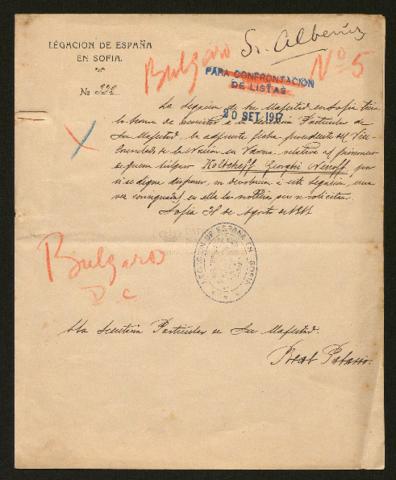 LEGACION DE ESPAÑA
EN SOFIA.
Nº 222
Bulgaro
Sr. Albeniz
Nº 5
PARA CONFRONTACION
DE LISTAS
20 SET. 1917
La Legación de Su Majestad en Sofía tiene
la honra de remitir á la Secretaría Particular de
Su Majestad la adjunta ficha procedente del Vice-
Consulado de la Nación en Varna relativa al prisionero
búlgaro Koltcheff Georghi Nenoff por
si se digna disponer su devolución á esta Legación una
vez consignadas en ella las noticias que se solicitan.
Sofía 28 de Agosto de 1917
LEGACION DE ESPAÑA EN SOFIA
Bulgaro
D. C
A la Secretaría Particular de Su Majestad.
Real Palacio.